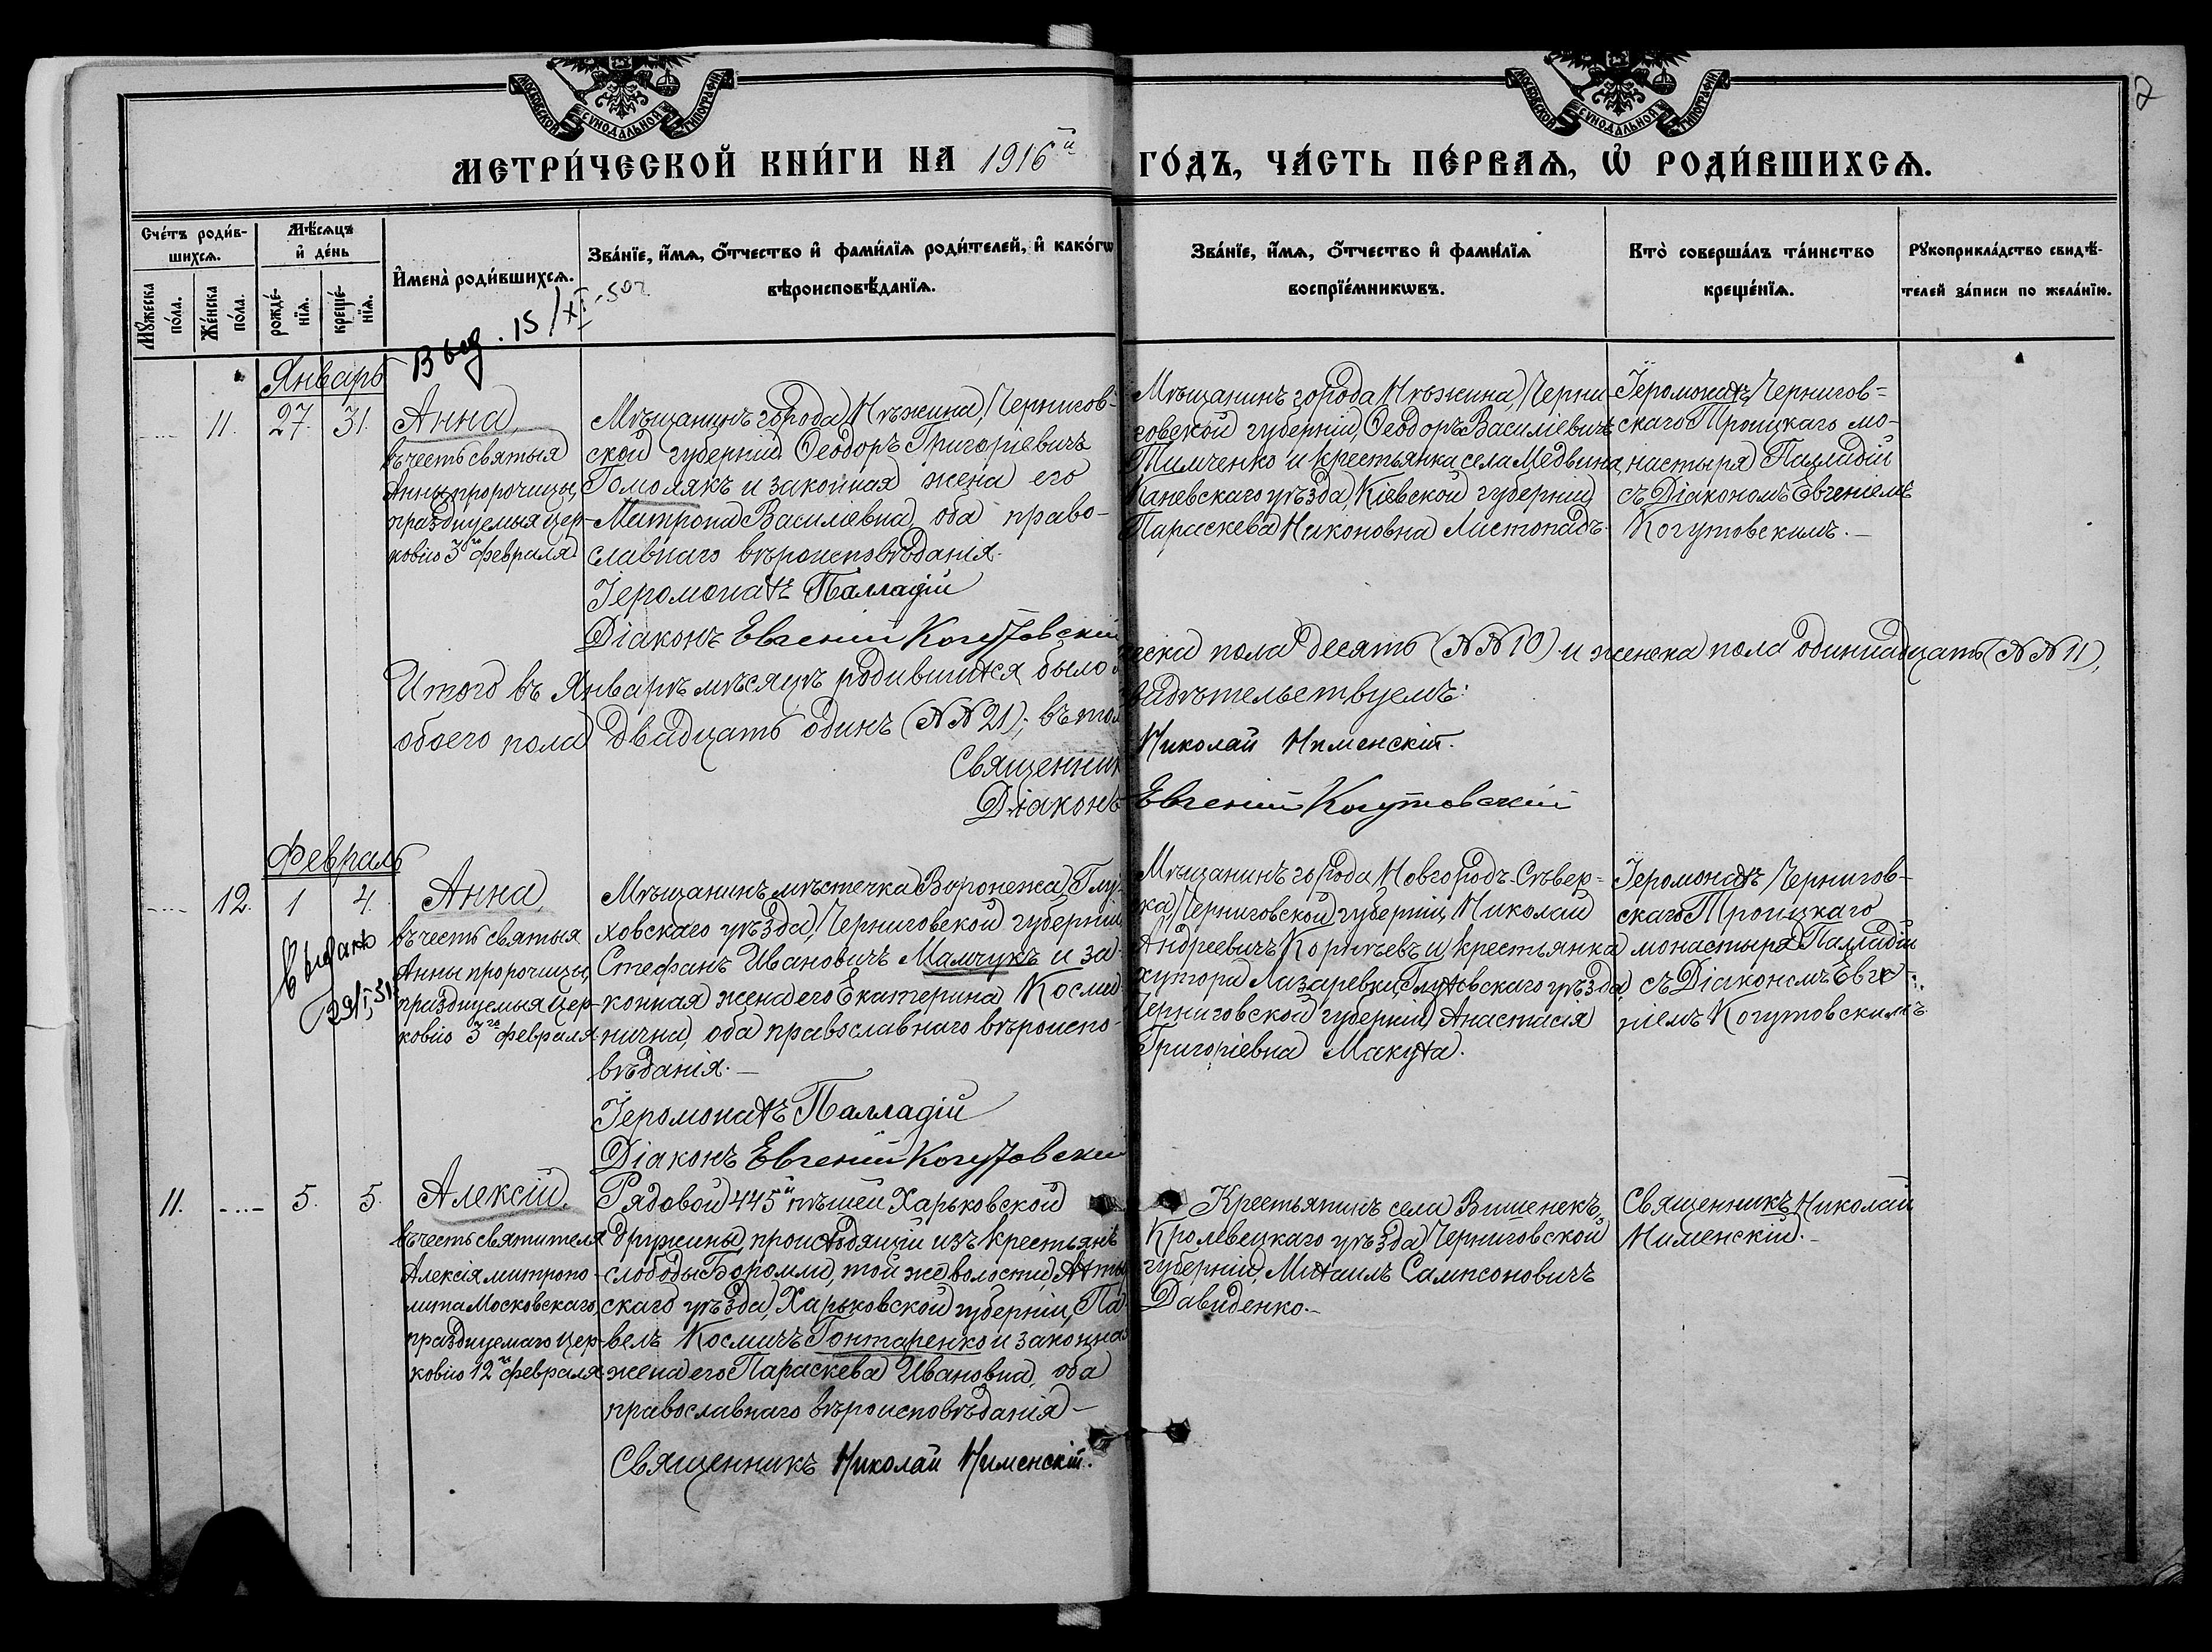 МОСКОВСКОЙ СѴНОДАЛЬНОЙ ТИПОГРАФІИ
МОСКОВСКОЙ СѴНОДАЛЬНОЙ ТИПОГРАФІИ
2
МЕТРИ́ЧЕСКОЙ КНИ́ГИ НА 1916й
ГО́ДЪ, ЧА́СТЬ ПЕ́РВАѦ, Ѡ҆ РОДИ́ВШИХСѦ.
Сче́тъ роди́в-
шихсѧ.
Мѣ́сѧцъ
и҆ де́нь
Мꙋ́жеска
по́ла.
Же́нска
по́ла.
рожде́-
нїѧ.
креще́-
нїѧ.
И҆мена̀ роди́вшихсѧ.
Зва́нїе, и҆́мѧ, ѻ҆́тчество и҆ фами́лїѧ роди́телей, и҆ како́гѡ
вѣроисповѣ́данїѧ.
Зва́нїе, и҆́мѧ, ѻ҆́тчество и҆ фами́лїѧ
воспрїе́мникѡвъ.
Кто̀ соверша́лъ та́инство
креще́нїѧ.
Рꙋкоприкла́дство свидѣ́-
телей за́писи по жела́нїю.
Выд. 15/XI-50г
Январь
11. 27. 31.
Анна,
въ честь святыя
Анны пророчицы,
празднуемыя цер-
ковію 3го февраля
Мѣщанинъ города Нѣжина, Чернигов-
ской губерніи Ѳеодоръ Григоріевичъ
Гомолякъ и законная жена его
Матрона Василіевна, оба право-
славнаго вѣроисповѣданія.
Іеромонахъ Палладій
Діаконъ Евгеній Когутовскій
Мѣщанинъ города Нѣжина, Черни-
говской губерніи, Ѳеодоръ Василіевичъ
Тимченко и крестьянка села Медвина,
Каневскаго уѣзда, Кіевской губерніи,
Параскева Никоновна Листопадъ.
Іеромонахъ Чернигов-
скаго Троицкаго мо-
настыря Палладій
съ Діакономъ Евгеніемъ
Когутовскимъ.
Итого въ Январѣ мѣсяцѣ родившихся было
еска пола десять (№№ 10) и женска пола одиннадцать (№№ 11),
обоего пола двадцать одинъ (№№ 21); въ том
видѣтельствуемъ:
Священник
Николай Нименскій.
Діаконъ
Евгеній Когутовскій
Февраль
12. 1 4.
Выдано
29/I, 31
Анна,
въ честь святыя
Анны пророчицы,
празднуемыя цер-
ковію 3го февраля.
Мѣщанинъ мѣстечка Воронежа, Глу-
ховскаго уѣзда, Черниговской губерніи,
Стефанъ Ивановичъ Мамчукъ и за-
конная жена его Екатерина Косми-
нична, оба православнаго вѣроиспо-
вѣданія.
Іеромонахъ Палладій
Діаконъ Евгеній Когутовскій
Мѣщанинъ города Новгородъ-Сѣвер-
ка, Черниговской губерніи, Николай
Андреевичъ Корнѣевъ и крестьянка
хутора Лазаревки, Глуховскаго уѣзда,
Черниговской губерніи Анастасія
Григоріевна Макуха.
Іеромонахъ Чернигов-
скаго Троицкаго
монастыря Палладій
съ Діакономъ Евге-
ніемъ Когутовскимъ.
11. 5. 5.
Алексій,
въ честь святителя
Алексія митропо-
лита Московскаго,
празднуемаго цер-
ковію 12го февраля
Рядовой 445й пѣшей Харьковской
дружины, происходящій изъ крестьянъ
слободы Боромли, той же волости, Ахты
скаго уѣзда, Харьковской губерніи, Па-
велъ Космичъ Гонтаренко и законная
жена его Параскева Ивановна, оба
православнаго вѣроисповѣданія
Священникъ Николай Нименскій.
Крестьянинъ села Вишенекъ,
Кролевецкаго уѣзда, Черниговской
губерніи, Михаилъ Сампсоновичъ
Давиденко.
Священникъ Николай
Нименскій.